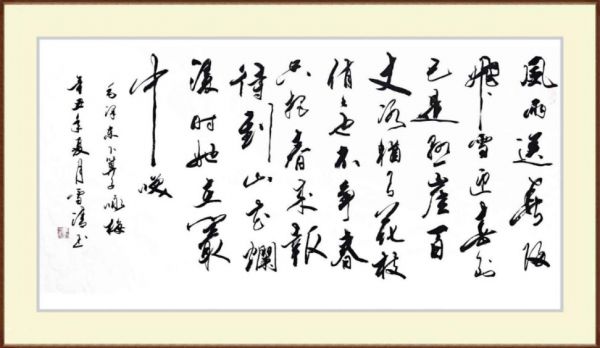 風雨送春歸
飛雪迎春到
已是懸崖百
丈冰猶有花枝
俏々也不争春
只把春来報
待到山花爛
漫时她在叢
中咲
毛泽东卜算子咏梅
辛丑年夏月雪书